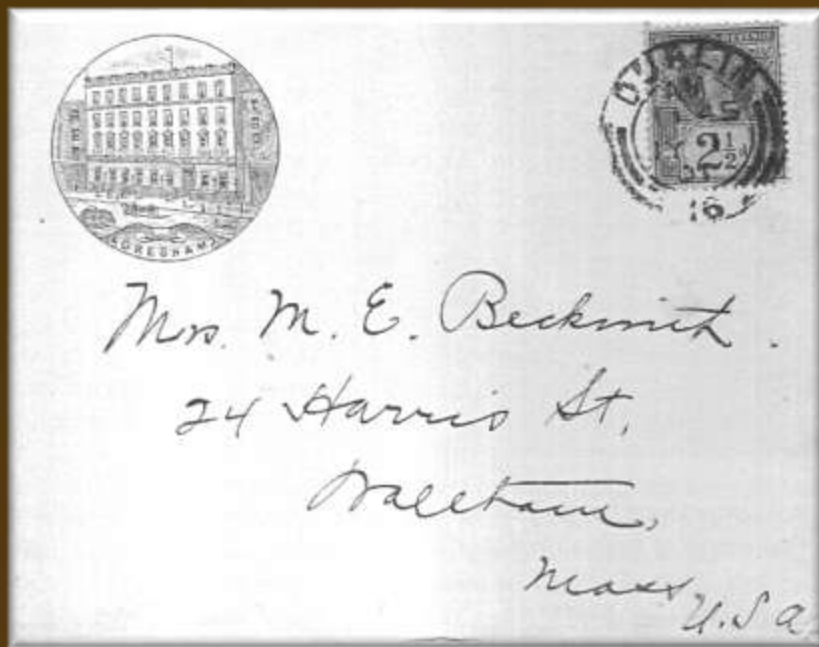 DUBLIN
2½
16
Mrs. M. E. Beckwith.
24 Harris St.
Waltham,
Mass
U.S.A